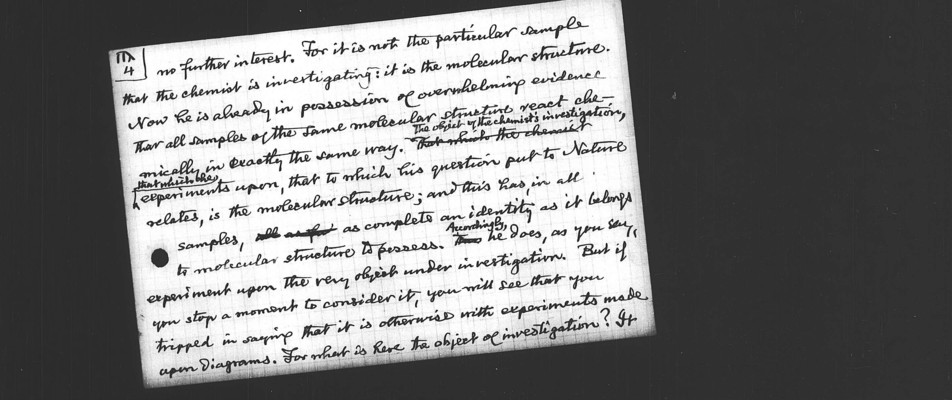 IIx
4
no further interest. For it is not the particular sample
that the chemist is investigating: it is the molecular structure.
Now he is already in possession of overwhelming evidence
that all samples of the same molecular structure react che-
mically in exactly the same way. That which the chemist
The object of the chemist's investigation,
that which he
experiments upon, that to which his question put to Nature
relates, is the molecular structure; and this has, in all
samples, as complete an identity as it belongs
to molecular structure to possess. Accordingly, he does, as you say,
experiment upon the very object under investigation. But if
you stop a moment to consider it, you will see that you
tripped in saying that it is otherwise with experiments made
upon diagrams. For what is here the object of investigation? It